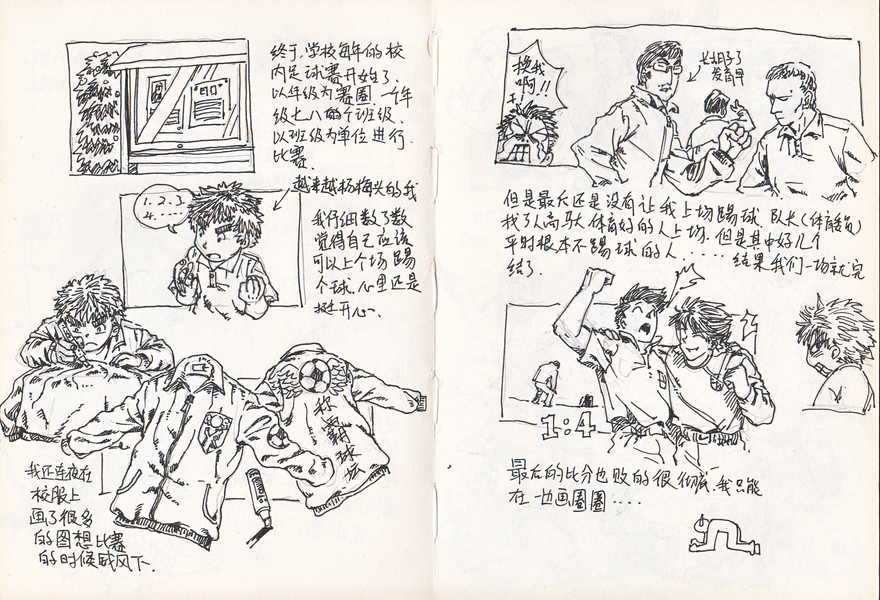 终于,学校每年的校
内足球赛开始了.
以年级为赛圈.一个年
级七八的个班级.
以班级为单位进行.
比赛.
越来越杨梅头的我
1.2.3.
4....
我仔细数了数
觉得自己应该
可以上个场踢
个球.心里还是
挺开心.
称霸球坛
我还连夜在
校服上
画了很多
的图想比赛
的时候威风下.
换我
啊!!
长胡子了
发育早
但是最后还是没有让我上场踢球.队长(体育委员)
找了人高马大体育好的人上场.但是其中好几个
平时根本不踢球的人......结果我们一场就完
结了.
1:4
最后的比分也败的很彻底.我只能
在一边画圈圈....